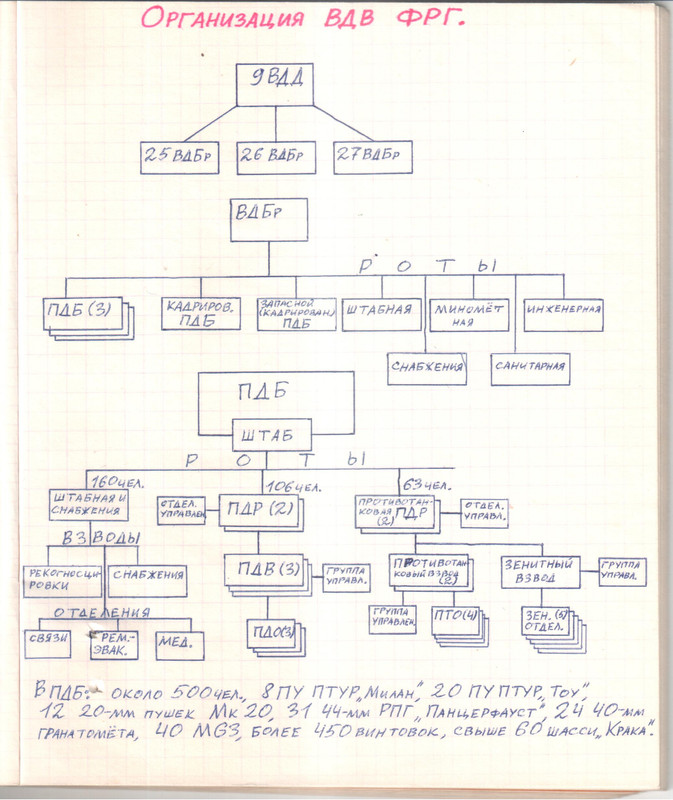 ОРГАНИЗАЦИЯ ВДВ ФРГ.
9 ВДД
25 ВДБр 26 ВДБр 27 ВДБр
ВДБр
РОТЫ
ПДБ (3)
КАДРИРОВ.
ПДБ
ЗАПАСНОЙ
(КАДРИРОВАН)
ПДБ
ШТАБНАЯ
МИНОМЁТ
НАЯ
ИНЖЕНЕРНАЯ
СНАБЖЕНИЯ
САНИТАРНАЯ
ПДБ
ШТАБ
РОТЫ
160 ЧЕЛ.
ШТАБНАЯ И
СНАБЖЕНИЯ
ОТДЕЛ.
УПРАВЛЕН.
106 ЧЕЛ.
ПДР (2)
63 ЧЕЛ.
ПРОТИВОТАН-
КОВАЯ ПДР
(2)
ОТДЕЛ.
УПРАВЛ.
ВЗВОДЫ
РЕКОГНОСЦИ-
РОВКИ
СНАБЖЕНИЯ
ПДВ (3)
ГРУППА
УПРАВЛ.
ПРОТИВОТАН-
КОВЫЙ ВЗВОД
(2)
ЗЕНИТНЫЙ
ВЗВОД
ГРУППА
УПРАВЛ.
ОТДЕЛЕНИЯ
СВЯЗИ
РЕМ.-
ЭВАК.
МЕД.
ПДО (3)
ГРУППА
УПРАВЛЕН.
ПТО (4)
ЗЕН. (5)
ОТДЕЛ.
В ПДБ: - ОКОЛО 500 ЧЕЛ., 8 ПУ ПТУР „МИЛАН", 20 ПУ ПТУР „ТОУ",
12 20-ММ ПУШЕК МК 20, 31 44-ММ РПГ „ПАНЦЕРФАУСТ", 24 40-ММ
ГРАНАТОМЁТА, 40 MG3, БОЛЕЕ 450 ВИНТОВОК, СВЫШЕ 60 ШАССИ „КРАКА".